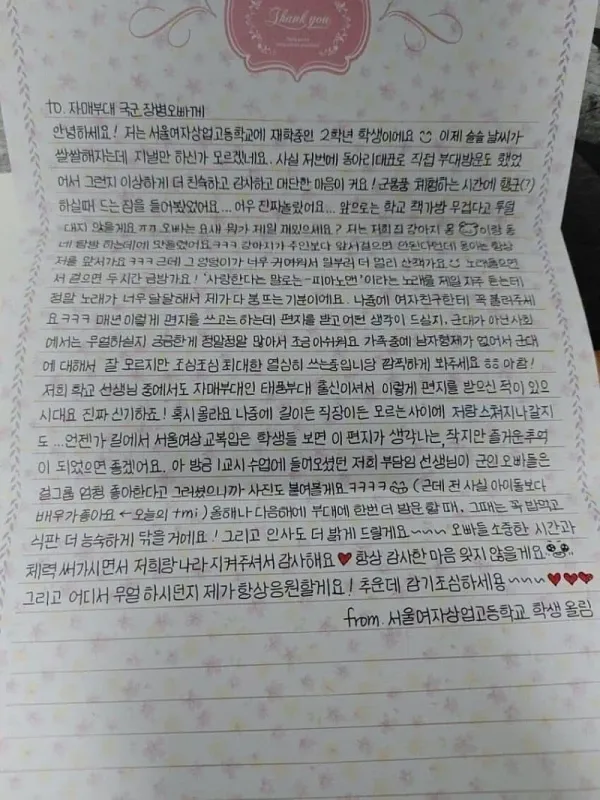 Thank you
to. 자매부대 국군 장병오빠께
안녕하세요! 저는 서울여자상업고등학교에 재학중인 2학년 학생이에요 이제 슬슬 날씨가
쌀쌀해지는데 지낼만 하신가 모르겠네요. 사실 저번에 동아리대표로 직접 부대방문도 했었
어서 그런지 이상하게 더 친숙하고 감사하고 대단한 마음이 커요! 군용품 체험하는 시간에 행군(?)
하실때 드는 짐을 들어봤었어요... 어우 진짜놀랐어요... 앞으로는 학교 책가방 무겁다고 투덜
대지 않을게요 ㅠㅠ 오빠는 요새 뭐가 제일 재밌으세요? 저는 저희집 강아지 몽 이랑 동
네 탐방 하는데에 맛들였어요ㅋㅋㅋ 강아지가 주인보다 앞서걸으면 안된다던데 몽이는 항상
저를 앞서가요 ㅋㅋㅋ 근데 그 엉덩이가 너무 귀여워서 일부러 더 멀리 산책가요 노래들으면
서 걸으면 두시간 금방가요! '사랑한다는 말로는-피아노맨' 이라는 노래를 제일 자주 듣는데
정말 노래가 너무 달달해서 제가 다 붕뜨는기분이에요. 나중에 여자친구한테 꼭 불러주세
요 ㅋㅋㅋ 매년 이렇게 편지를 쓰고는하는데 편지를 받고 어떤 생각이 드실지, 군대가 아닌사회
에서는 무얼하실지 궁금한게 정말정말 많아서 조금 아쉬워요 가족중에 남자형제가 없어서 군대
에 대해서 잘 모르지만 조심조심 최대한 열심히 쓰는중입니당 깜찍하게 봐주세요 ㅎㅎ 아함!
저희 학교 선생님 중에서도 자매부대인 태풍부대 출신이셔서 이렇게 편지를 받으신 적이 있으
시대요 진짜 신기하죠! 혹시 몰라요 나중에 길이든 직장이든 모르는사이에 저랑스쳐지나갈지
도 ...언젠가 길에서 서울여상 교복입은 학생들을 보면 이 편지가 생각나는, 작지만 즐거운추억
이 되었으면 좋겠어요. 아 방금 1교시 수업에 들어오셨던 저희 부담임 선생님이 군인 오빠들은
걸그룹 엄청 좋아한다고 그러셨으니까 사진도 붙여볼게요ㅋㅋㅋㅋ (근데 전 사실 아이돌보다
배우가좋아요 ←오늘의 tmi) 올해나 다음해에 부대에 한번 더 방문 할 때, 그때는 꼭 밥먹고
식판 더 능숙하게 닦을 거에요! 그리고 인사도 더 밝게 드릴게요~~~ 오빠들 소중한 시간과
체력 써가시면서 저희랑 나라 지켜주셔서 감사해요♥ 항상 감사한 마음 잊지 않을게요
그리고 어디서 무얼 하시던지 제가 항상응원할게요! 추운데 감기조심하세용~~~♥♥♥
from. 서울여자상업고등학교 학생 올림